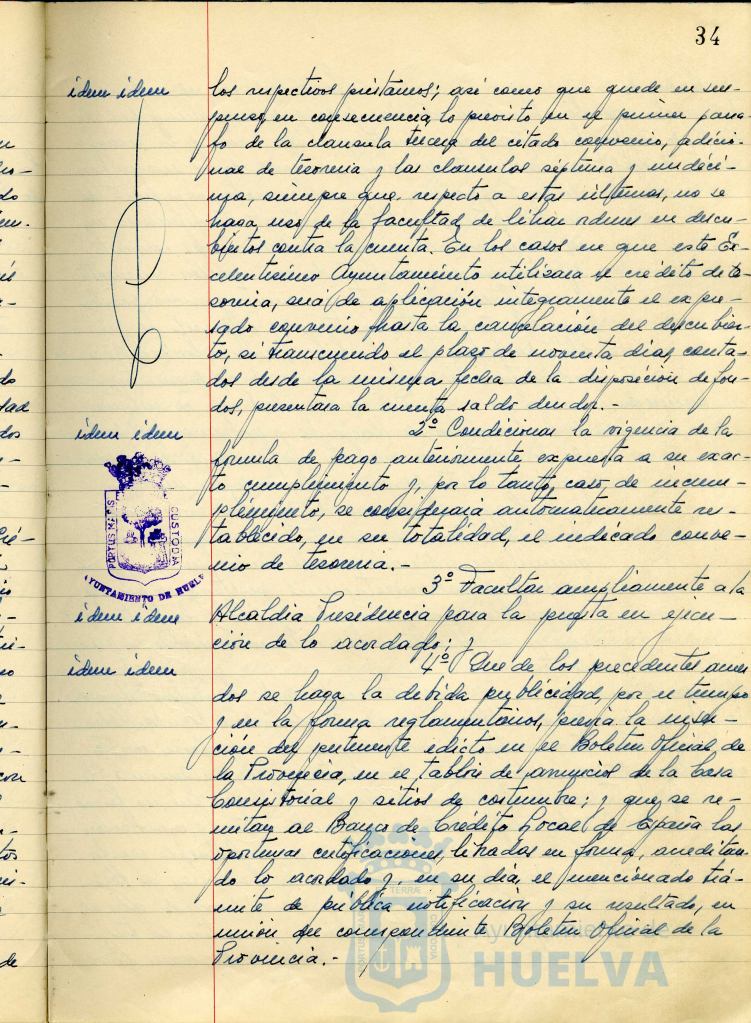 34
idem idem
los respectivos préstamos; así como que quede en sus-
penso, en consecuencia, lo previsto en el primer párra-
fo de la cláusula tercera del citado convenio, adicio-
nal de tesorería y las cláusulas séptima y undéci-
ma, siempre que, respecto a estas últimas, no se
haga uso de la facultad de librar ordenes en descu-
biertos contra la cuenta. En los casos en que este Ex-
celentísimo Ayuntamiento utilizara el crédito de te-
sorería, será de aplicación integramente el expre-
sado convenio hasta la cancelación del descubier-
to, si transcurrido el plazo de noventa dias, conta-
dos desde la misma fecha de la disposición de fon-
dos, presentara la cuenta saldo deudor.-
idem idem
2º Condicionar la vigencia de la
formula de pago anteriormente expuesta a su exac-
to cumplimiento y, por lo tanto, caso de incum-
plimiento, se consideraria automaticamente res-
tablecido, en su totalidad, el indicado conve-
nio de tesoreria.-
PORTUS MARIS
CUSTODIA
AYUNTAMIENTO DE HUELVA
3º Facultar ampliamente a la
idem idem
Alcaldia Presidencia para la puesta en ejecu-
ción de lo acordado; y
idem idem
4º Que de los precedentes acuer
dos se haga la debida publicidad, por el tiempo
y en la forma reglamentarios, previa la inser-
ción del pertinente edicto en el Boletin Oficial de
la Provincia, en el tablón de anuncios de la Casa
Consistorial y sitios de costumbre; y que, se re-
mitan al Banco de Credito Local de España las
oportunas certificaciones, libradas en forma, acreditan-
do lo acordado y, en su dia, el mencionado trá-
mite de pública notificación y su resultado, en
unión del correspondiente Boletin Oficial de la
Provincia.-
HUELVA